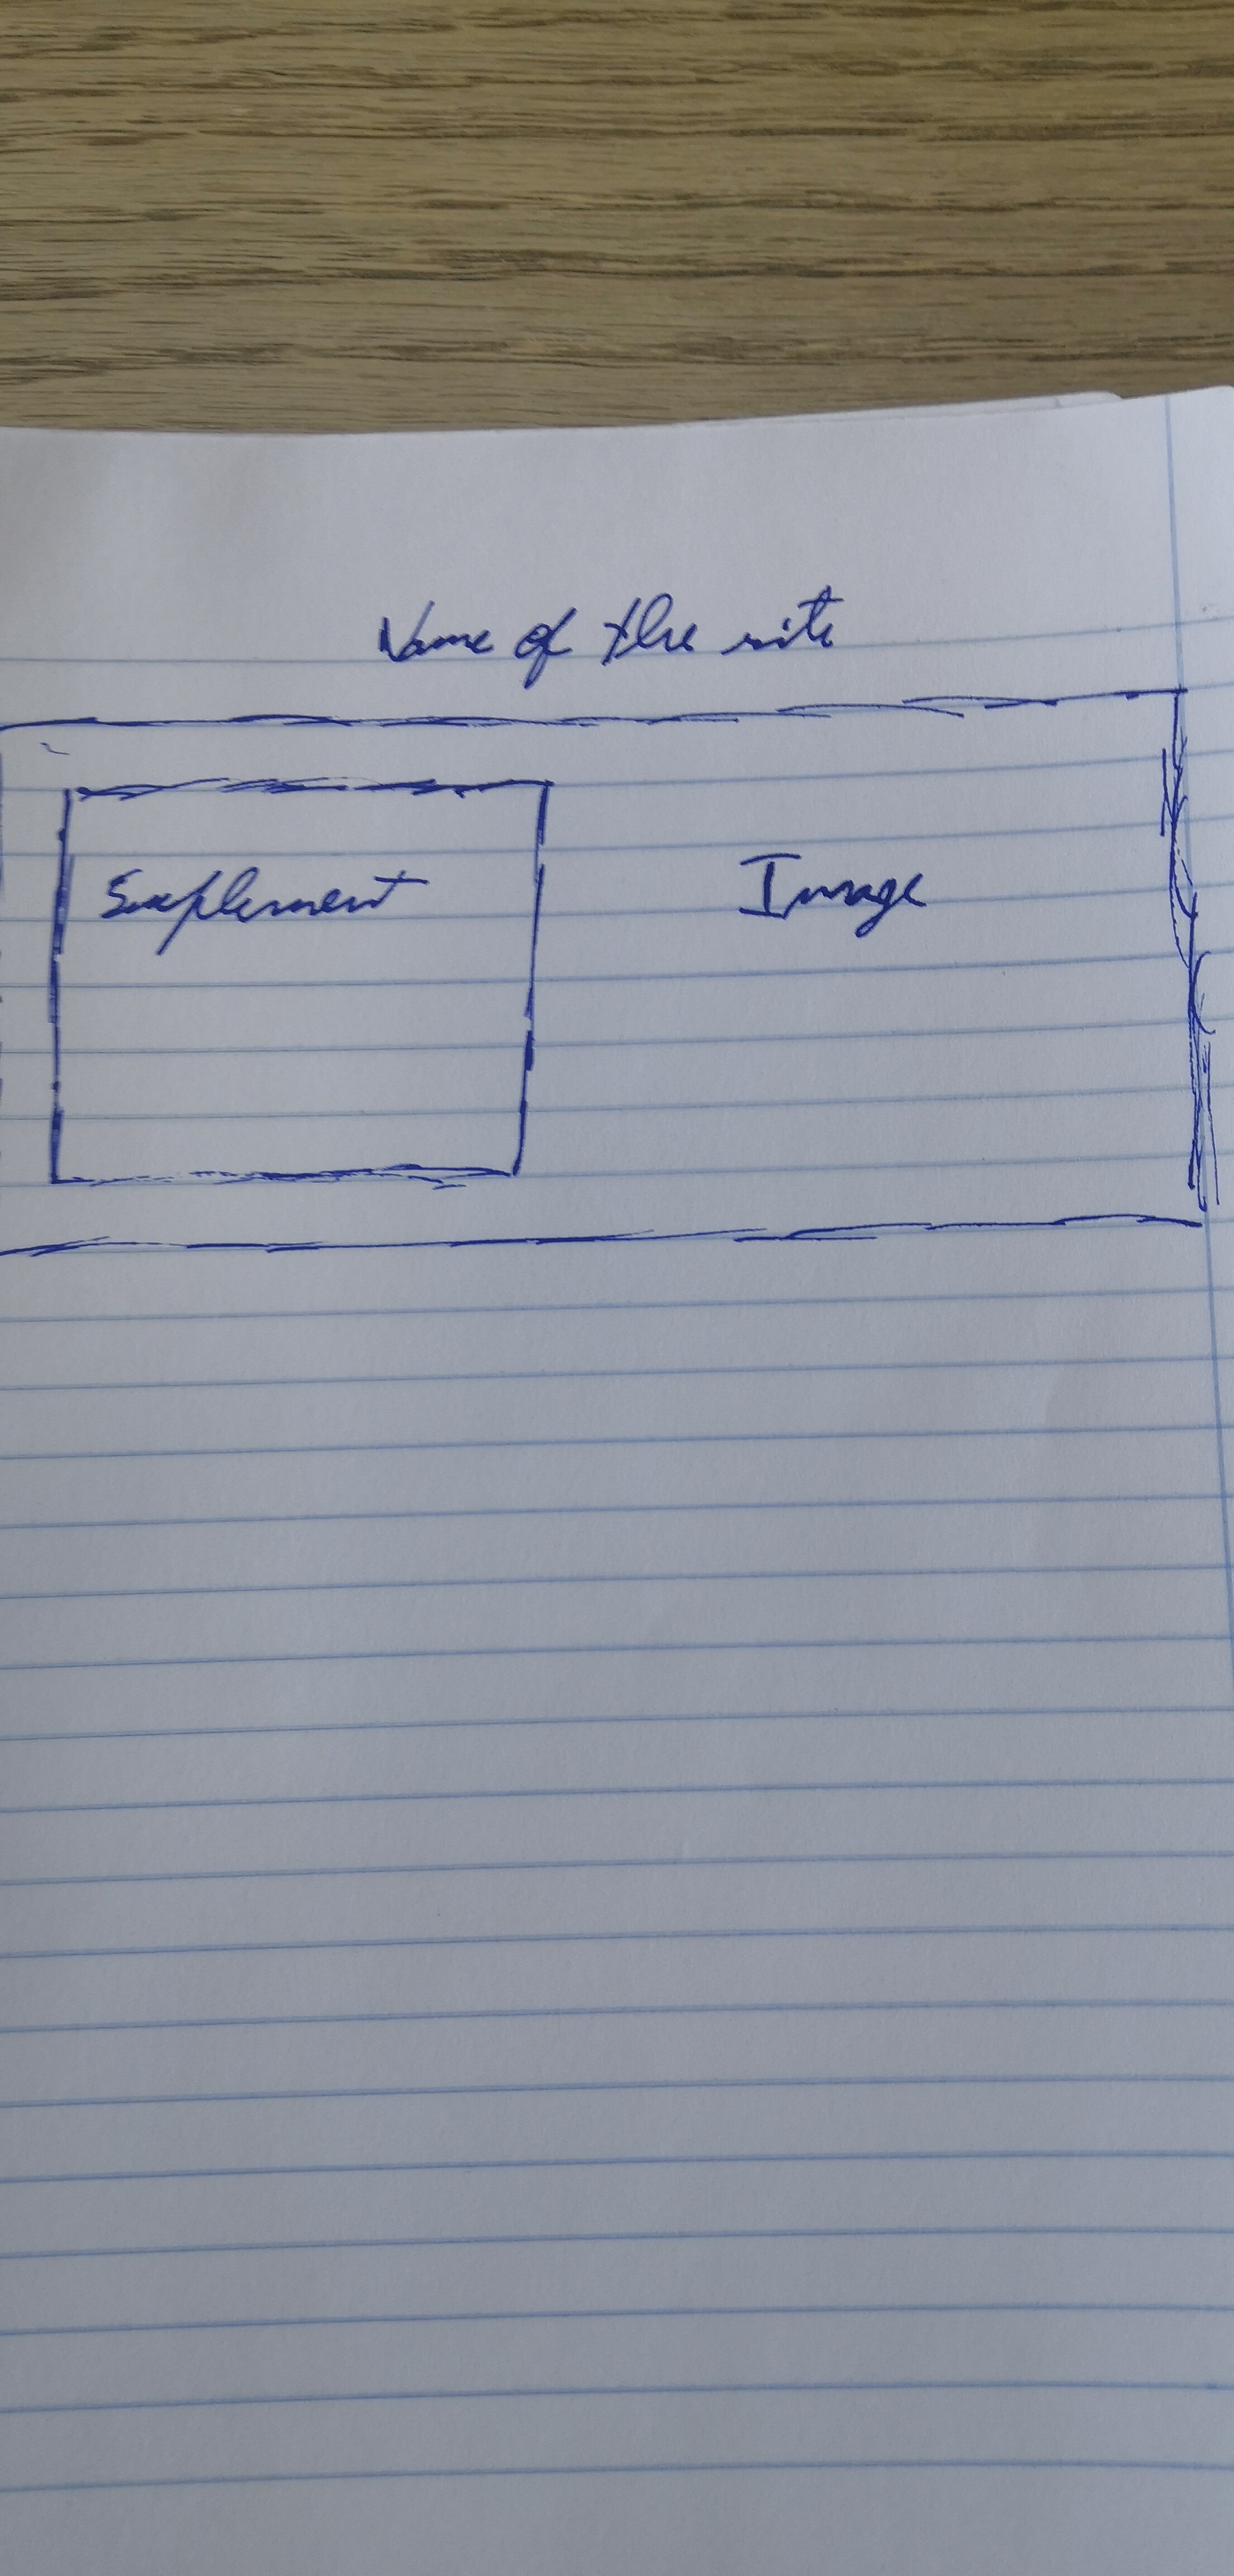 Name of the site
Suplement
Image